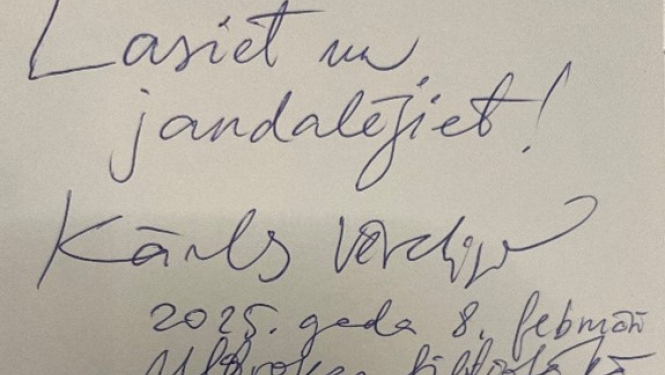 Lasiet un
jandalējiet!
Kārlis Vērdiņš
2025. gada 8. februārī
Ulbrokas bibliotēkā